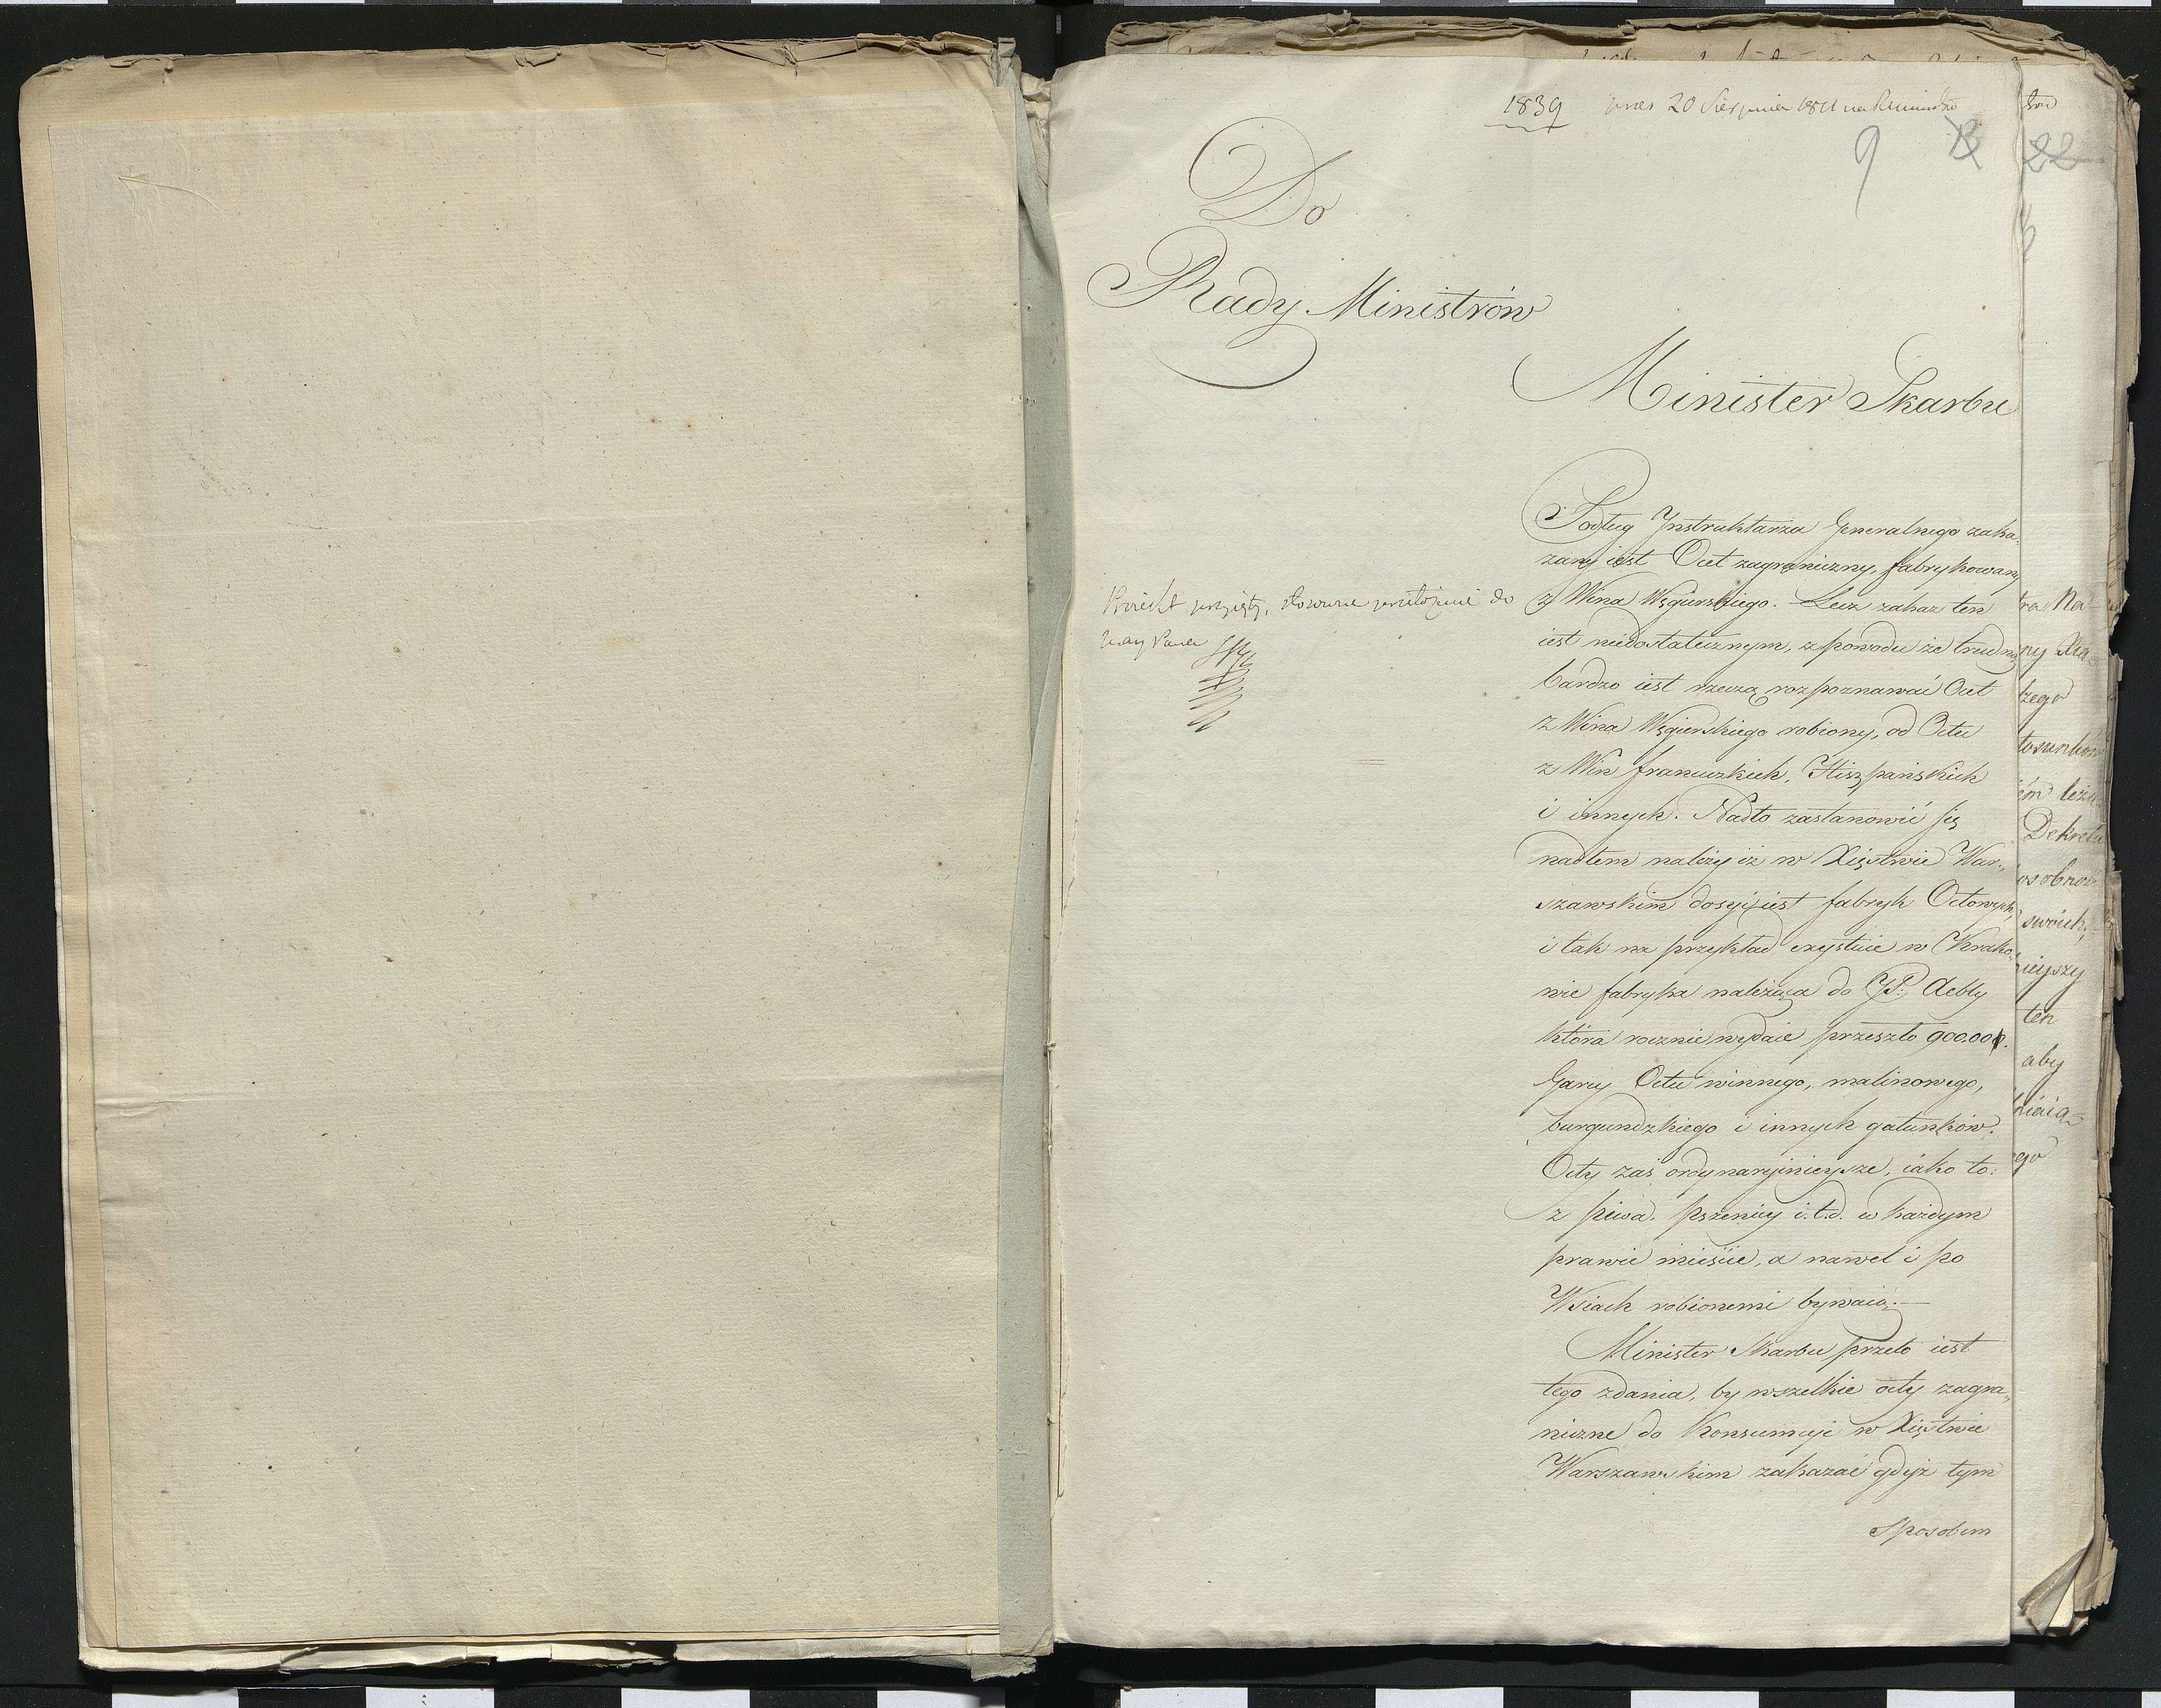 1839 20 Sierpnia 1811 na
9 22
Do
Rady Ministrów
Minister Skarbu
Podług Instruktarza Generalnego zaka-
zany iest Ocet zagraniczny, fabrykowany
z Wina Węgierskiego. Lecz zakaz ten
iest niedostatecznym, z powodu że trudną
bardzo iest rzeczą rozpoznawać Ocet
z Wina Węgierskiego robiony, od Octu
z Win francuzkich, Hiszpańskich
i innych. Nadto zastanowić się
nadtem należy iż w Xięstwie War-
szawskim dosyć iest fabryk Octowych,
i tak na przykład exystuie w Krako-
wie fabryka należąca do JP: Aebly
która rocznie wydaie przeszło 900.000.
Garcy Octu winnego, malinowego,
burgundzkiego i innych gatunków.
Octy zaś ordynaryinieysze, iako to:
z piwa, pszenicy i.t.d. w każdym
prawie mieście, a nawet i po
Wsiach robionemi bywaią.
Minister Skarbu przeto iest
tego zdania, by wszelkie octy zagra-
niczne do Konsumcyi w Xięstwie
Warszawskim zakazać gdyż tym
Sposobem
Proiekt przyięty, stosowne przełożenie do
tra Na-
ny Xią-
tosunków
Dekreta
osobno
swoich,
ten
aby